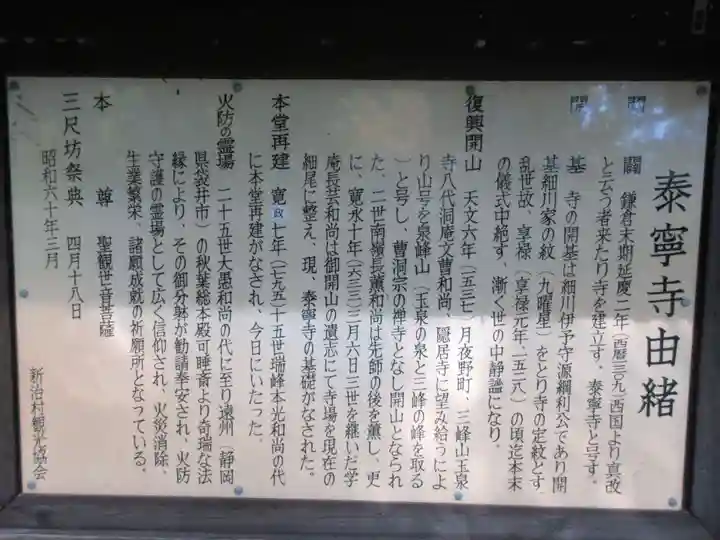 泰寧寺由緒
開闢 鎌倉末期延慶二年(西暦一三〇九)西国より真改
と云う者来たり寺を建立す、泰寧寺と号す。
開基 寺の開基は細川伊予守源綱利公であり開
基細川家の紋(九曜星)をとり寺の定紋とす
乱世故、享禄(享禄元年、一五二八)の頃迄本末
の儀式中絶す、漸く世の中静謐になり。
復興開山 天文六年(一五三七)月夜野町、三峰山玉泉
寺八代洞庵文曹和尚、隠居寺に望み給うによ
り山号を泉峰山(玉泉の泉と三峰の峰を取る
)と号し、曹洞宗の禅寺となし開山となられ
た、二世南嶺長薫和尚は先師の後を薫し、更
に、寛永十年(一六三三)三月六日三世を継いだ学
庵長芸和尚は御開山の遺志にて寺場を現在の
細尾に整え、現、泰寧寺の基礎がなされた。
本堂再建 寛政七年(一七九五)十五世瑞峰本光和尚の代
に本堂再建がなされ、今日にいたった。
火防の霊場 二十五世大愚和尚の代に至り遠州(静岡
県袋井市)の秋葉総本殿可睡斎より奇瑞な法
縁により、その御分躰が勧請奉安され、火防
守護の霊場として広く信仰され、火災消除、
生業繁栄、諸願成就の祈願所となっている。
本尊 聖観世音菩薩
三尺坊祭典 四月十八日
昭和六十年三月
新治村観光協会